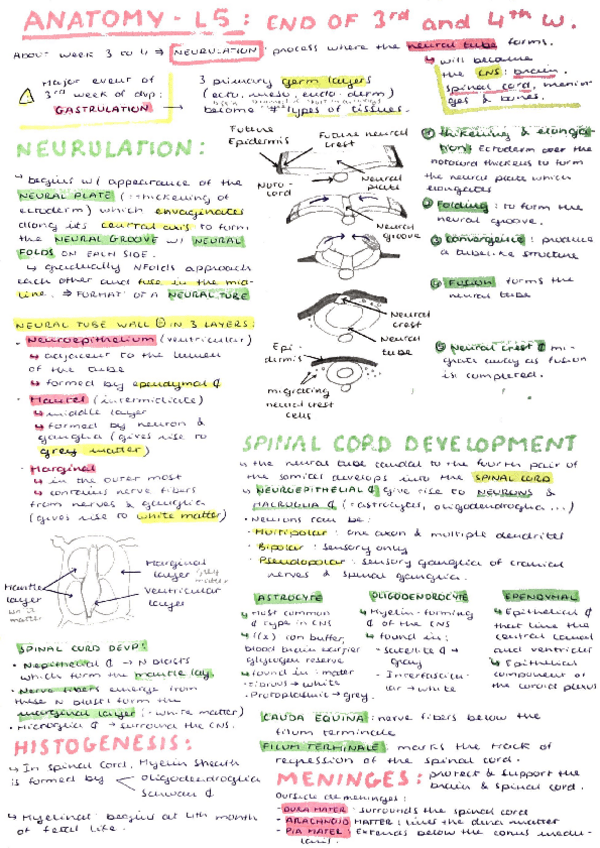 ANATOMY - L5 : END OF 3rd and 4th W.
About week 3 to 4 ⇒ NEURULATION : process where the neural tube forms.
↳ will become
the CNS : brain,
spinal cord, menin-
ges & bones.
⚠ Major event of
3rd week of dvp:
GASTRULATION →
3 primary germ layers
(ecto, meso, endo : derm)
become ≠ types of tissues.
NEURULATION :
↳ begins w/ appearance of the
NEURAL PLATE (: thickening of
ectoderm) which envaginates
along its central axis to form
the NEURAL GROOVE w/ NEURAL
FOLDS ON EACH SIDE.
↳ gradually NFolds approach
each other and fuse in the mid-
line. ⇒ FORMAT° OF A NEURAL TUBE
NEURAL TUBE WALL IN 3 LAYERS :
• Neuroepithelium (ventricular)
↳ adjacent to the lumen
of the tube
↳ formed by ependymal ¢
• Mantel (intermidiate)
↳ middle layer
↳ formed by neuron &
ganglia (gives rise to
grey matter)
• Marginal
↳ in the outer most
↳ contains nerve fibers
from nerves & ganglia
(gives rise to white matter)
Future
Epidermis
Future neural
crest
Noto-
cord
Neural
plate
Neural
groove
Neural
crest
Neural
tube
Epi-
dermis
migrating
neural crest
cells
① thickening & elonga-
tion : Ectoderm over the
notocord thickens to form
the neural plate which
elongates
② Folding : to form the
neural groove.
③ convergence : produce
a tubelike structure
④ Fusion forms the
neural tube
⑤ Neural crest ¢ mi-
grate away as fusion
is completed.
Mantle
layer
Marginal
layer grey
matter
Ventricular
layer
SPINAL CORD DEVP :
• Nepithelial ¢ → N blasts
which form the mantle lay.
• Nerve fibers emerge from
these N blast : form the
marginal layer (: white matter)
• Microglia ¢ → surround the CNS.
HISTOGENESIS :
↳ In spinal cord, Myelin sheath
is formed by
oligodendroglia
Schwann ¢
↳ Myelinat° begins at 4th month
of fetal life.
SPINAL CORD DEVELOPMENT
↳ the neural tube caudal to the fourth pair of
the somites develops into the SPINAL CORD
↳ NEUROEPITHELIAL ¢ give rise to NEURONS &
MACROGLIA ¢ (: astrocytes, oligodendroglia ...)
• Neurons can be :
- Multipolar : one axon & multiple dendrites
- Bipolar : sensory only
- Pseudopolar : sensory ganglia of cranial
nerves & spinal ganglia.
ASTROCYTE
↳ Most common
¢ type in CNS
↳ f(x) ion buffer,
blood brain barrier
glycogen reserve
↳ found in : matter
• Fibrous → white
• Protoplasmic → grey.
OLIGODENDROCYTE
↳ Myelin-forming
¢ of the CNS
↳ found in :
- Satellite ¢ →
gray
- Interfascic-
ular → white
EPENDYMAL
↳ Epithelial ¢
that line the
central canal
and ventricles
↳ Epithelial
component of
the coroid plexus
CAUDA EQUINA : nerve fibers below the
filum terminale
FILUM TERMINALE : marks the track of
regression of the spinal cord.
MENINGES : protect & support the
brain & spinal cord.
- DURA MATER : surrounds the spinal cord
- ARACHNOID MATTER : lines the dura matter
- PIA MATER : Extends below the conus medul-
laris.